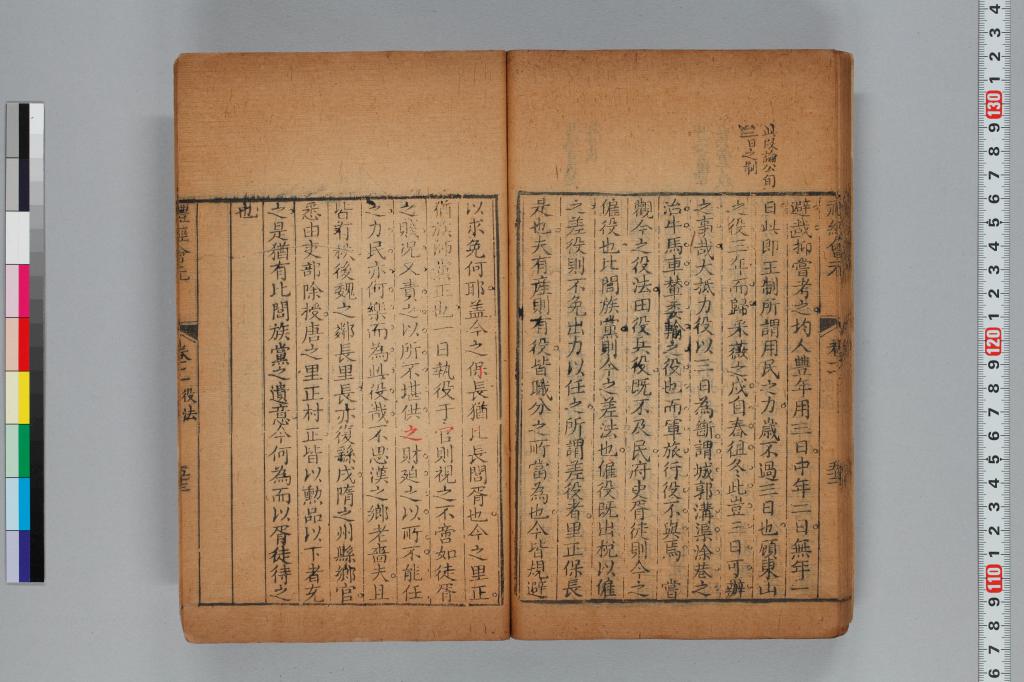 此以論公旬
三日之制
避哉抑嘗考之均人豐年用三日中年二日無年一
日此即王制所謂用民之力歲不過三日也顧東山
之役三年而歸采薇之戍自春徂冬此豈三日可辦
之事哉大抵力役以三日為斷謂城郭溝渠涂巷之
治牛馬車輦委輸之役也而軍旅行役不與焉嘗
觀今之役法田役兵役既不及民府史胥徒則今之
僱役也比閭族黨則今之差法也僱役既出稅以僱
之差役則不免出力以任之所謂差役者里正保長
是也夫有產則有役皆職分之所當為也今皆規避
以求免何耶蓋今之保長猶比長閭胥也今之里正
猶族師黨正也一日執役于官則視之不啻如徒胥
之賤況又責之以所不堪供之財廹之以所不能任
之力民亦何樂而為此役哉不思漢之鄉老嗇夫且
皆有秩後魏之鄰長里長亦復繇戍隋之州縣鄉官
悉由吏部除授唐之里正村正皆以勳品以下者充
之是猶有比閭族黨之遺意今何為而以胥徒待之
也
禮經會元
卷二
役法